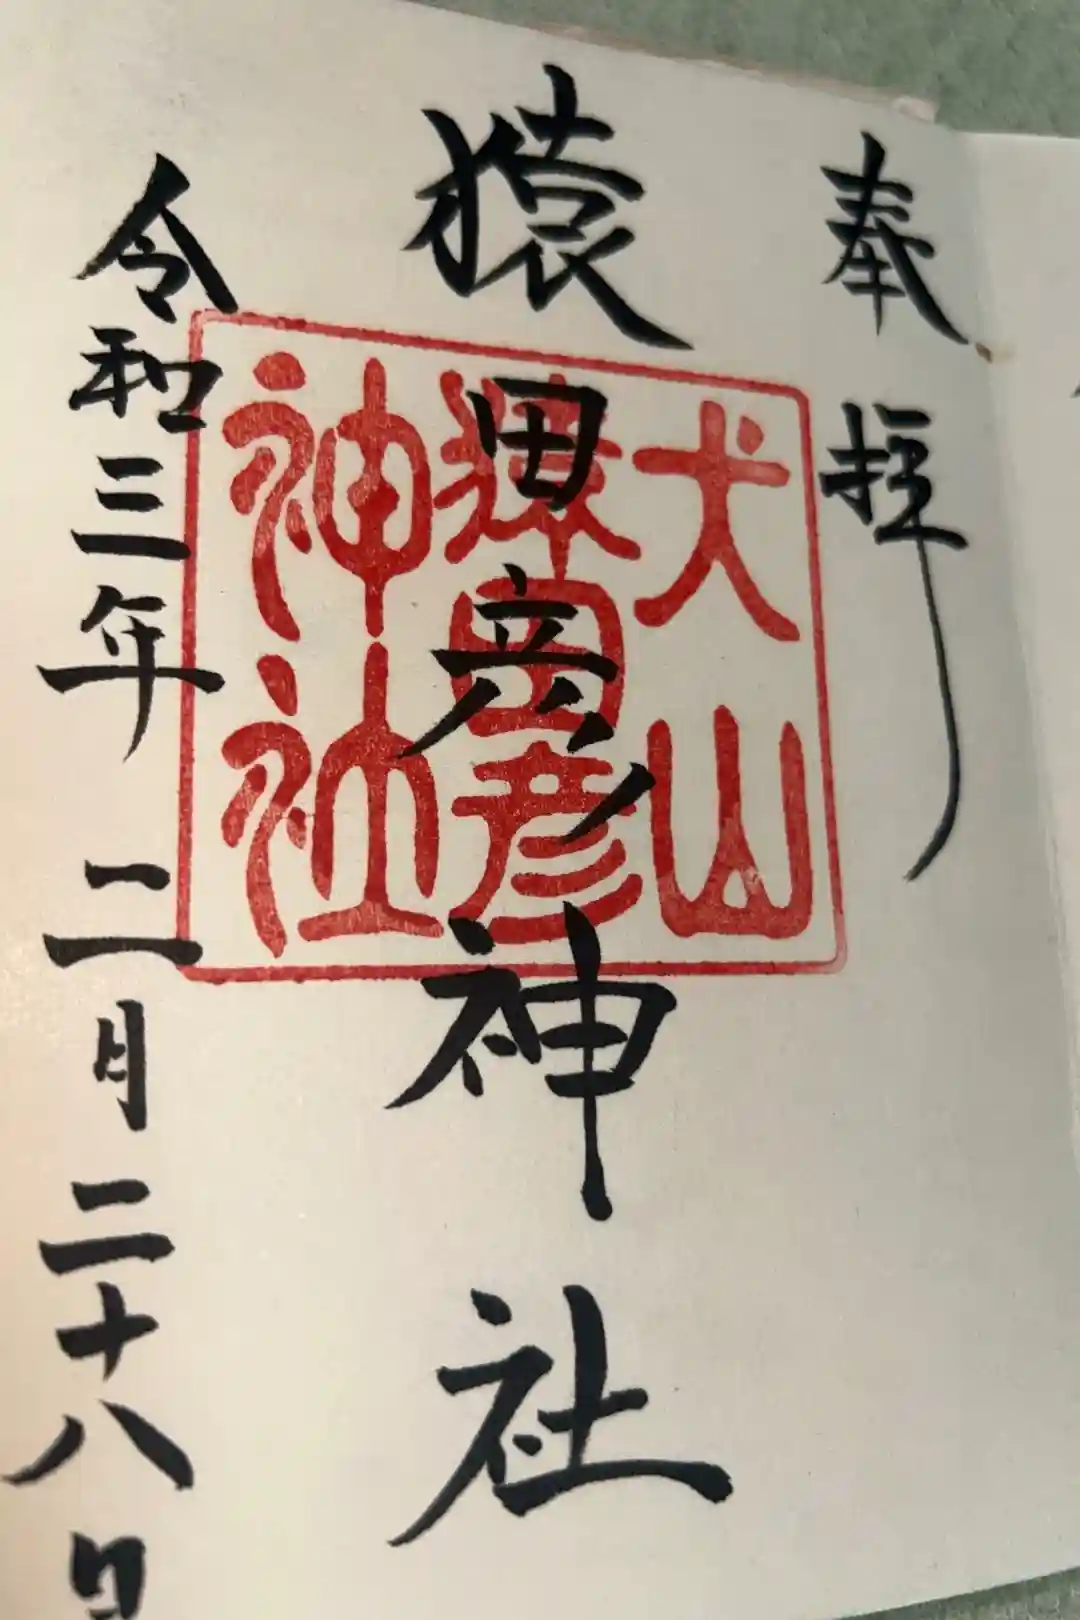 奉拝
犬山
猿田彦
神社
猿田彦神社
令和三年二月二十八日